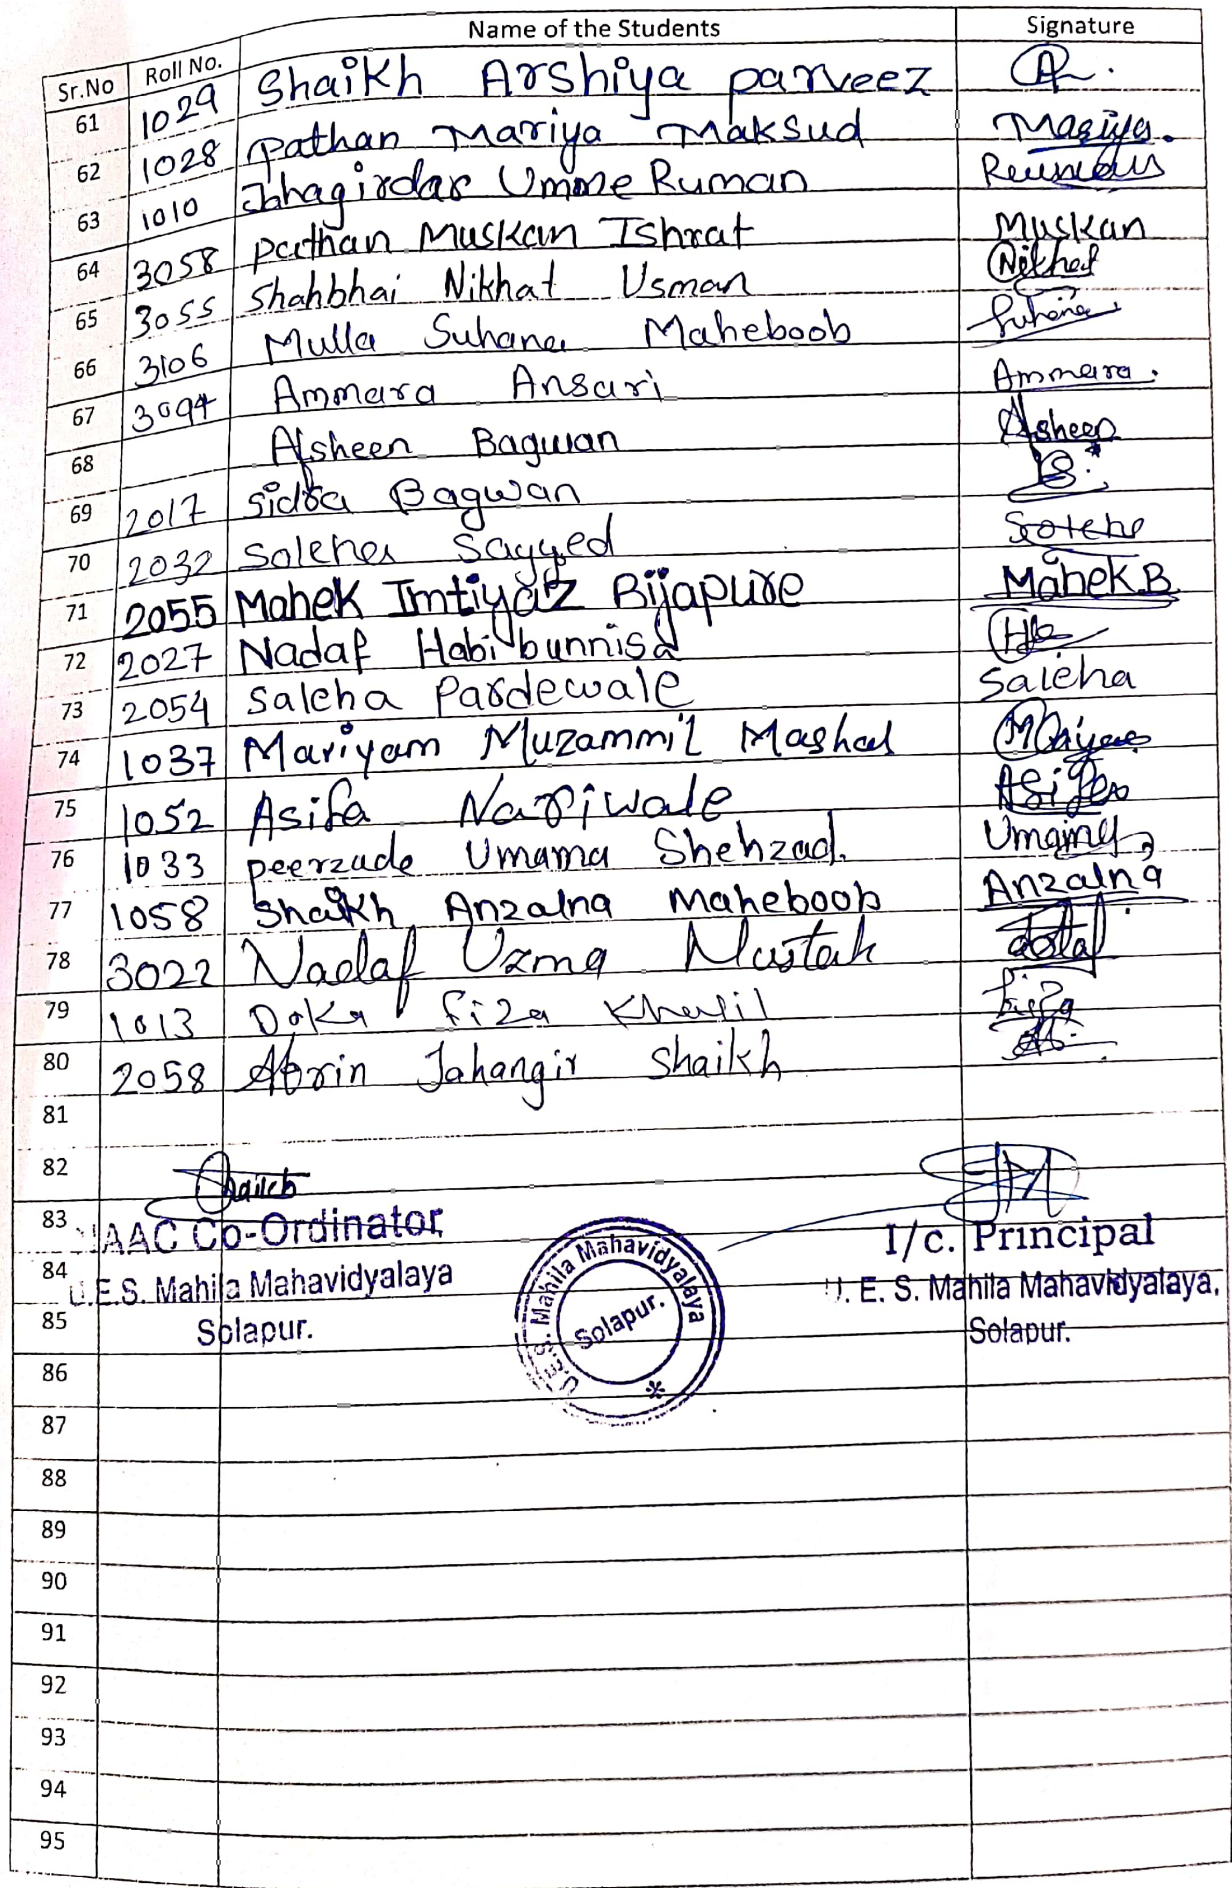 Sr.No Roll No. Name of the Students Signature
61 1029 Shaikh Arshiya parveez
62 1028 pathan Mariya Maksud Mariya.
63 1010 Jahagirdar Umme Ruman
64 3058 pathan Muskan Ishrat Muskan
65 3055 Shahbhai Nikhat Usman Nikhat
66 3106 Mulla Suhana Maheboob Suhana
67 3094 Ammara Ansari Ammara.
68 Afsheen Bagwan Afsheen
69 2017 Sidra Bagwan
70 2032 Soleha Sayyed
71 2055 Mahek Imtiyaz Bijapure Mahek B
72 2027 Nadaf Habibunnisa
73 2054 Saleha Pardewale Saleha
74 1037 Mariyam Muzammil Mashal
75 1052 Asifa Nariwale Asifa
76 1033 peerzade Umama Shehzad.
77 1058 Shaikh Anzalna Maheboob Anzalna
78 3022 Nadaf Uzma Mustak
79 1013 Doka fiza Khalil Fiza
80 2058 Afrin Jahangir Shaikh
81
82
83
NAAC Co-Ordinator
I/c. Principal
84
U.E.S. Mahila Mahavidyalaya
U. E. S. Mahila Mahavidyalaya,
85
Solapur.
Solapur.
U.E.S. Mahila Mahavidyalaya
Solapur.
86
87
88
89
90
91
92
93
94
95